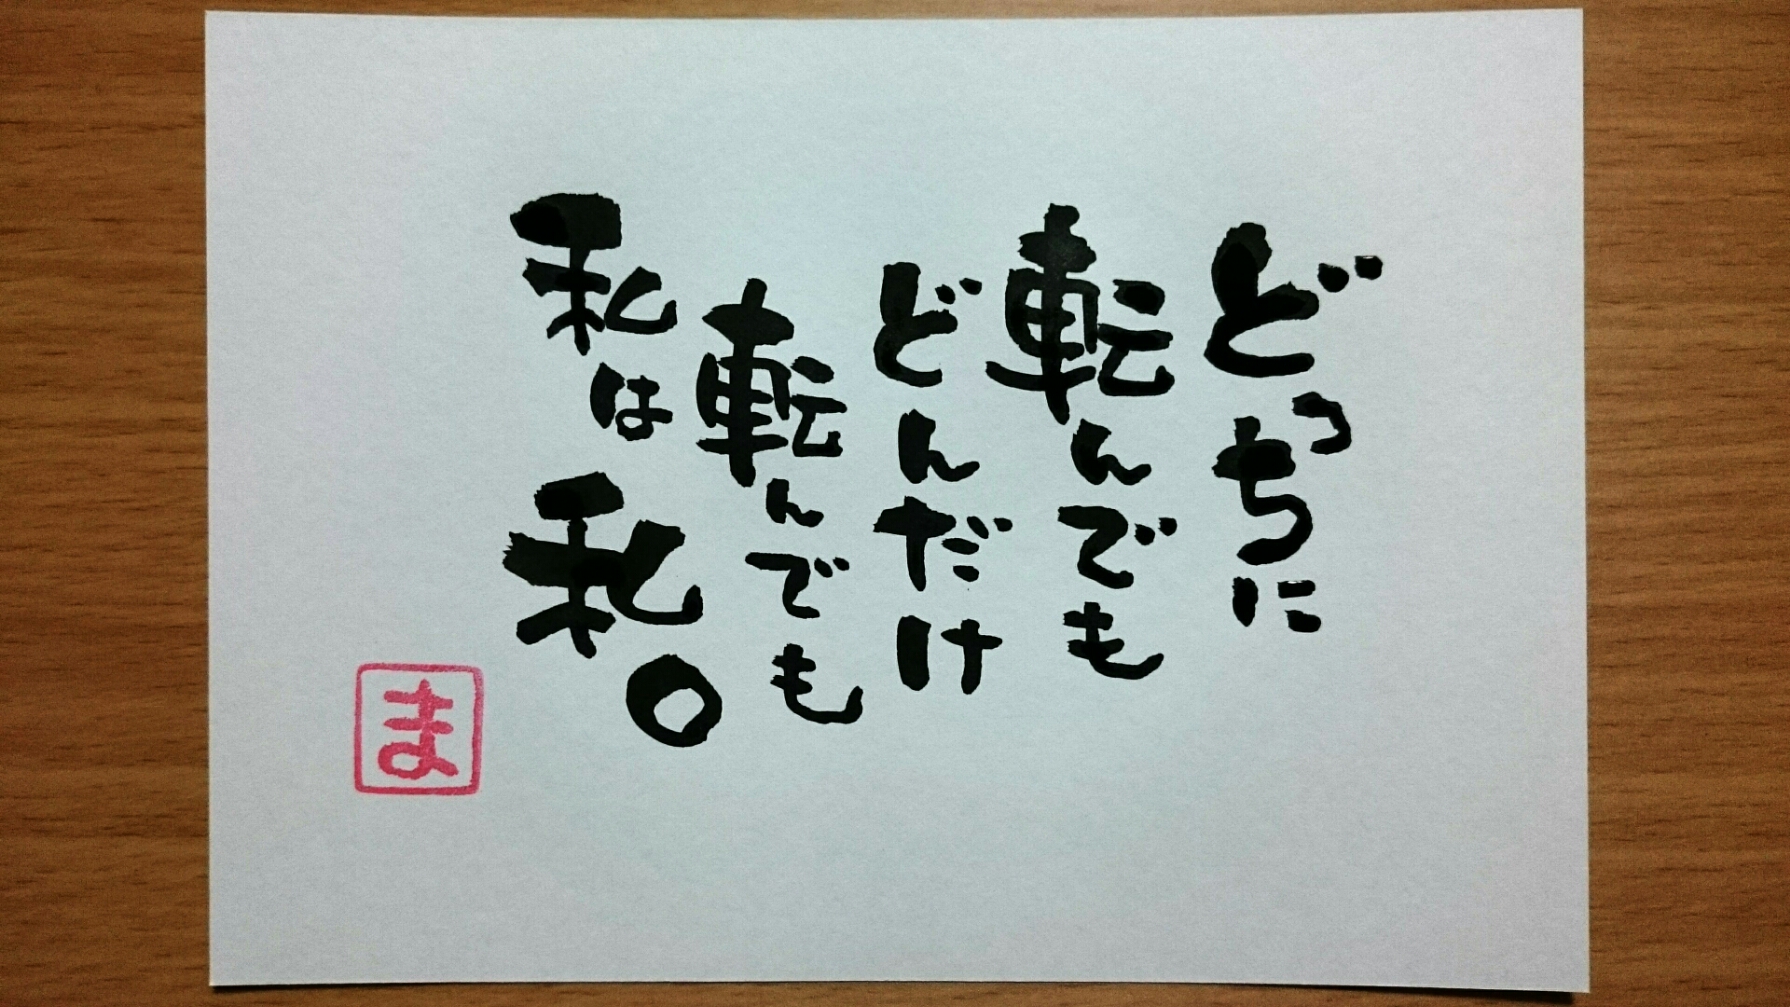 どっちに
転んでも
どんだけ
転んでも
私は私。
ま